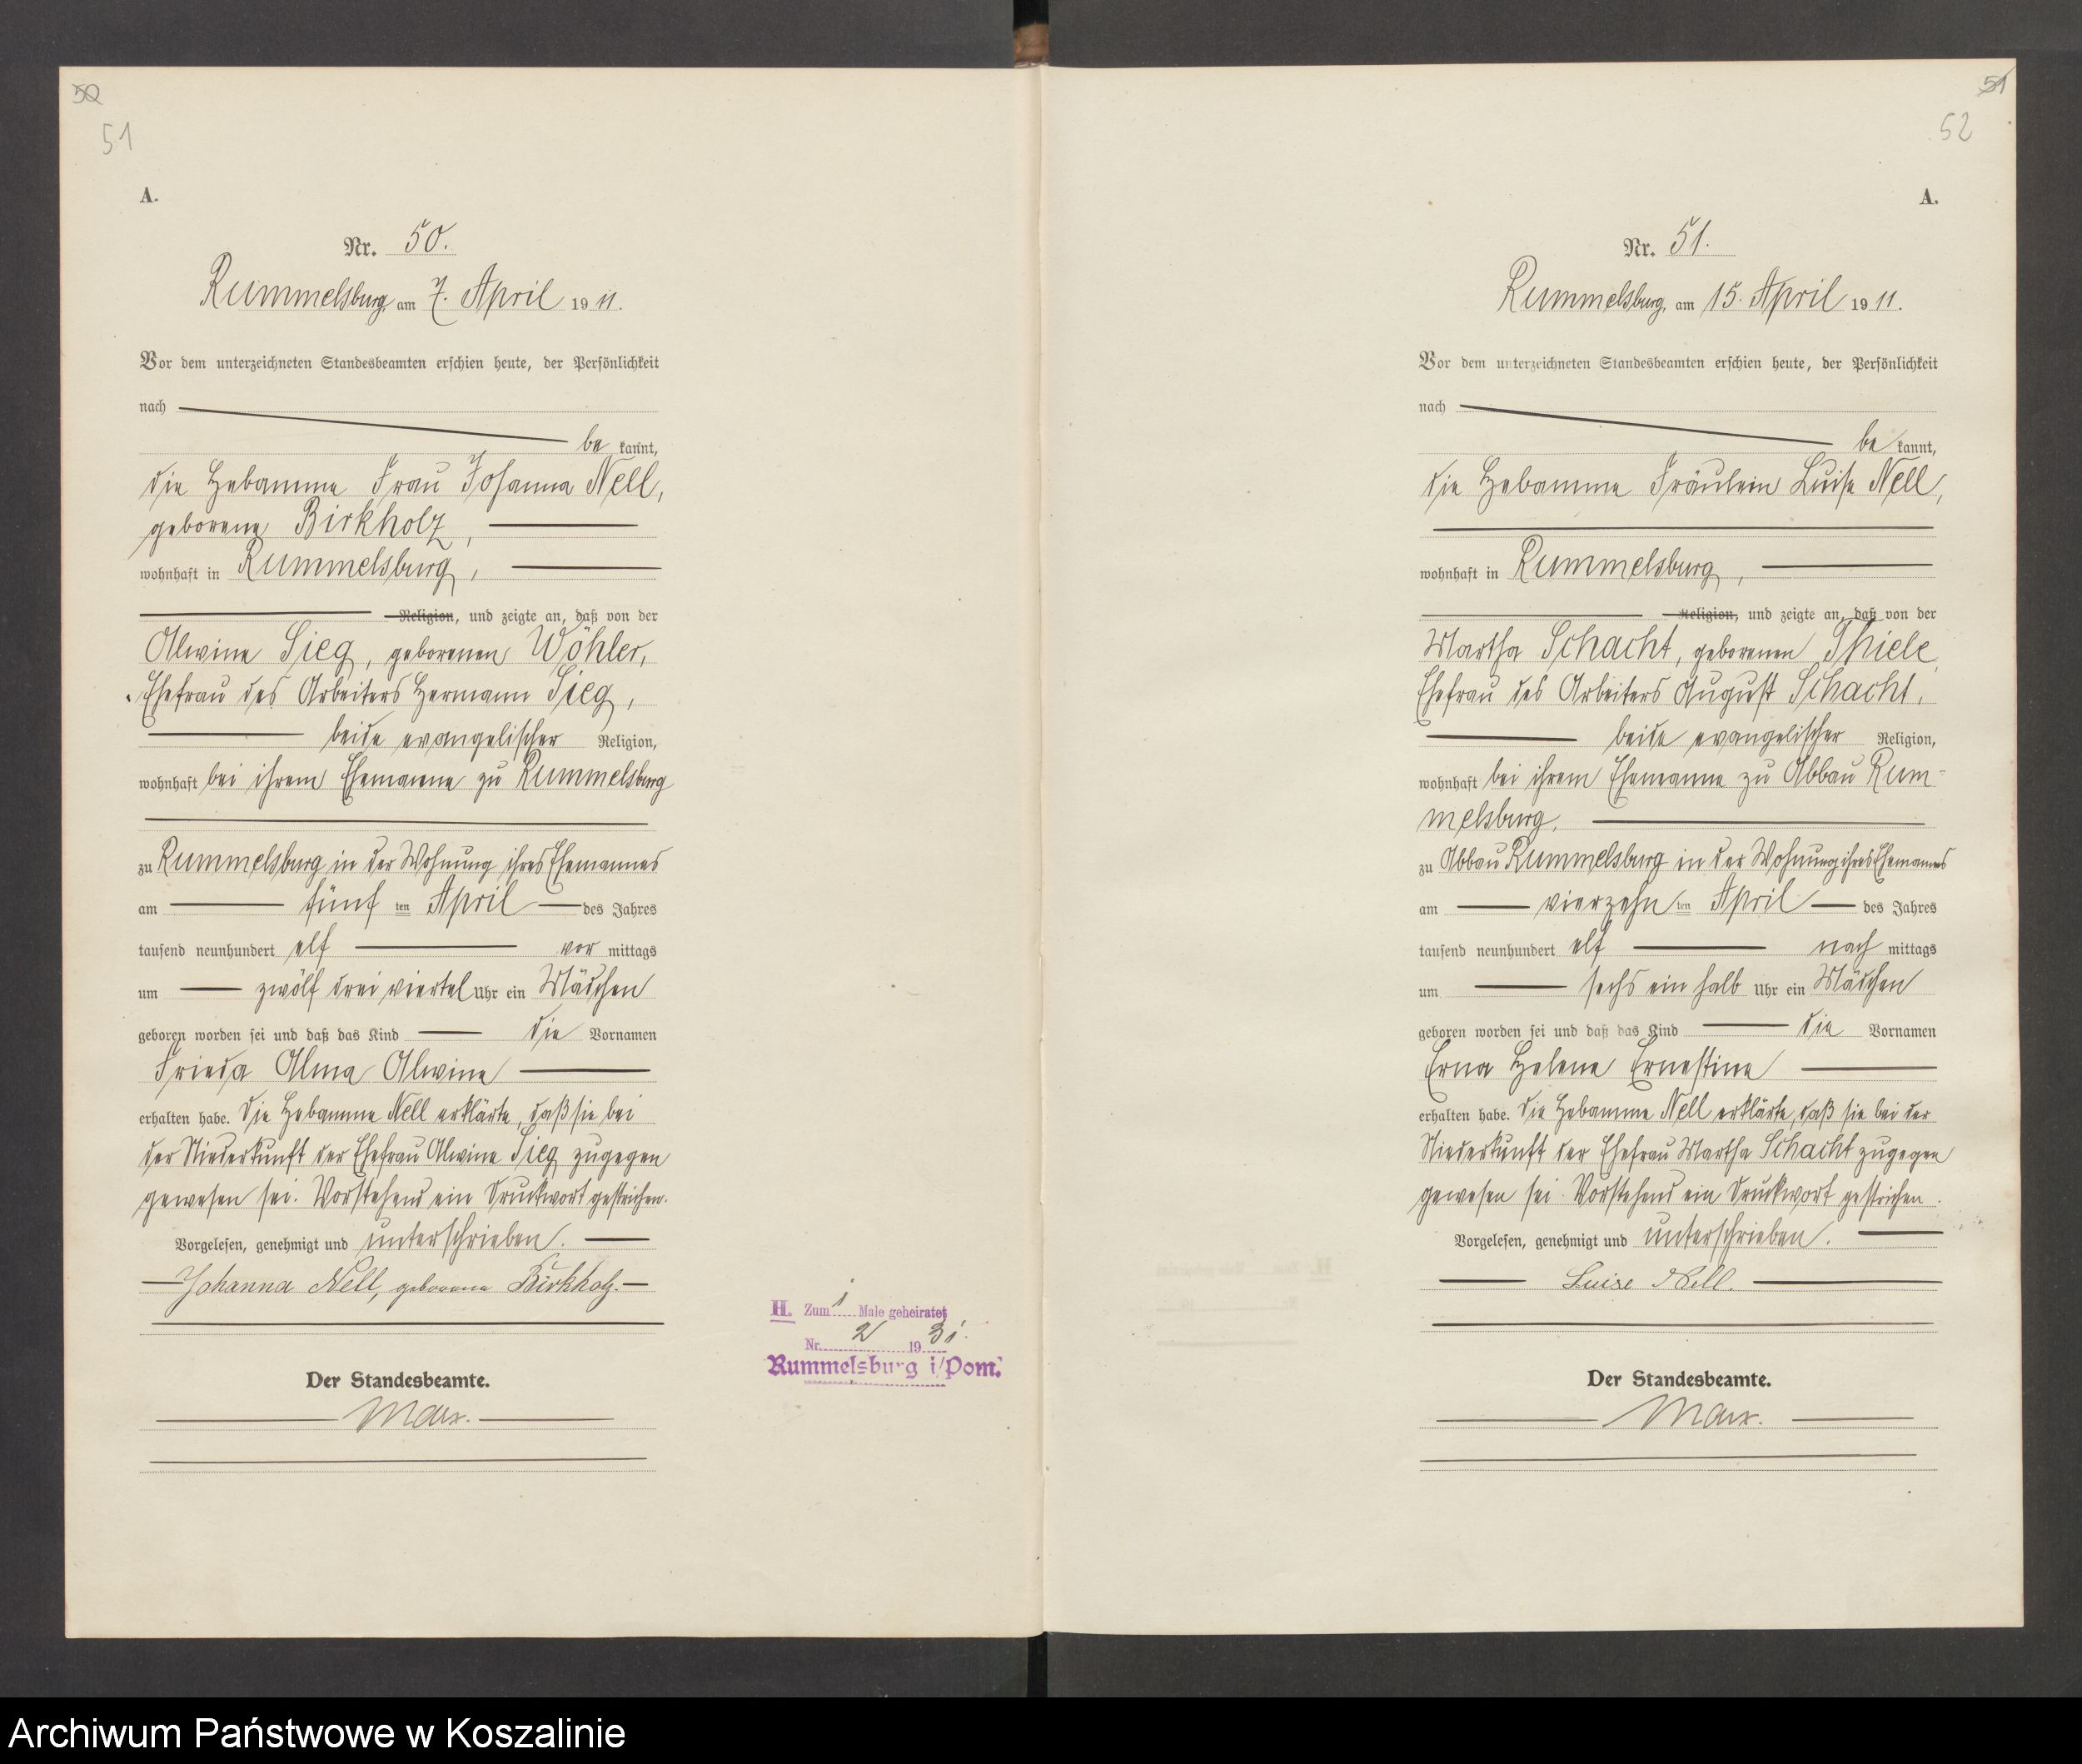 50
51
A.
Nr. 50.
Rummelsburg, am 7. April 1911.
Vor dem unterzeichneten Standesbeamten erschien heute, der Persönlichkeit
nach
be kannt,
die Hebamme Frau Johanna Nell,
geborene Birkholz,
wohnhaft in Rummelsburg,
Religion, und zeigte an, daß von der
Alwine Sieg, geborenen Wöhler,
Ehefrau des Arbeiters Hermann Sieg,
beide evangelischer Religion,
wohnhaft bei ihrem Ehemanne zu Rummelsburg
zu Rummelsburg in der Wohnung ihres Ehemannes
am fünf ten April des Jahres
tausend neunhundert elf vor mittags
um zwölf drei viertel Uhr ein Mädchen
geboren worden sei und daß das Kind die Vornamen
Frieda Alma Alwine
erhalten habe. Die Hebamme Nell erklärte, daß sie bei
der Niederkunft der Ehefrau Alwine Sieg zugegen
gewesen sei. Vorstehend ein Druckwort gestrichen.
Vorgelesen, genehmigt und unterschrieben.
Johanna Nell, geborene Birkholz.
Der Standesbeamte.
Marx.
H. Zum 1 Male geheiratet
Nr. 2 1931.
Rummelsburg i/Pom.
51
52
A.
Nr. 51.
Rummelsburg, am 15. April 1911.
Vor dem unterzeichneten Standesbeamten erschien heute, der Persönlichkeit
nach
be kannt,
die Hebamme Fräulein Luise Nell,
wohnhaft in Rummelsburg,
Religion, und zeigte an, daß von der
Martha Schacht, geborenen Thiele,
Ehefrau des Arbeiters August Schacht,
beide evangelischer Religion,
wohnhaft bei ihrem Ehemanne zu Abbau Rum-
melsburg,
zu Abbau Rummelsburg in der Wohnung ihres Ehemannes
am vierzehn ten April des Jahres
tausend neunhundert elf nach mittags
um sechs ein halb Uhr ein Mädchen
geboren worden sei und daß das Kind die Vornamen
Erna Helene Ernestine
erhalten habe. Die Hebamme Nell erklärte, daß sie bei der
Niederkunft der Ehefrau Martha Schacht zugegen
gewesen sei. Vorstehend ein Druckwort gestrichen.
Vorgelesen, genehmigt und unterschrieben.
Luise Nell.
Der Standesbeamte.
Marx.
Archiwum Państwowe w Koszalinie